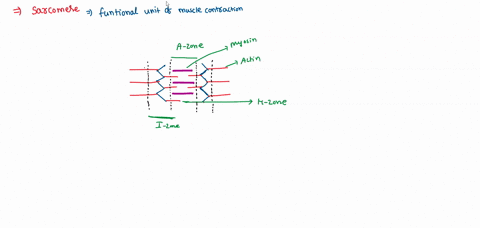 ⇒ Sarcomere ⇒ funtional unit of muscle contraction
A-zone
Myosin
Actin
H-zone
I-zone